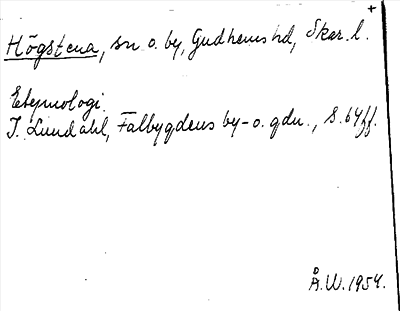 +
Högstena, sn o. by, Gudhems hd, Skar. l.
Etymologi.
I. Lundahl, Falbygdens by- o. gdn., s. 64 ff.
Å.W. 1954.